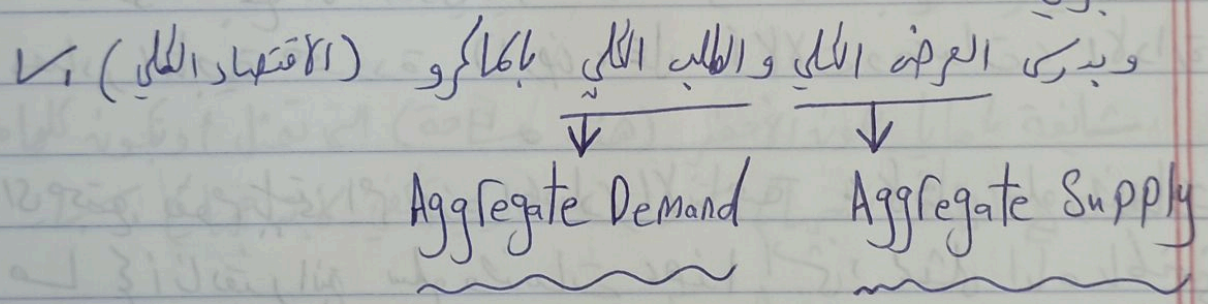 وندرس العرض الكلي والطلب الكلي بالماكرو (الاقتصاد الكلي)
Aggregate Demand Aggregate Supply